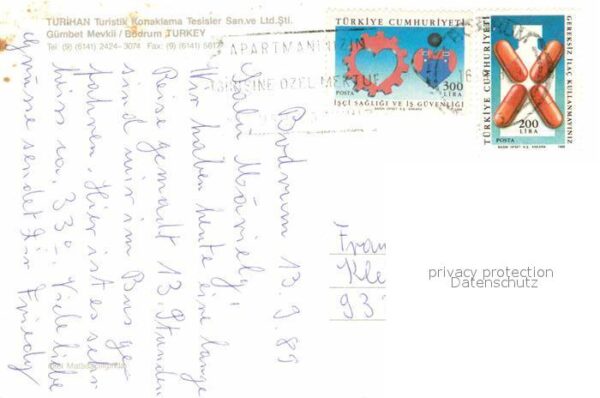 TURİHAN Turistik Konaklama Tesisler San.ve Ltd.Şti.
Gümbet Mevkii / Bodrum TURKEY
Tel (9) (6141) 2424-3074 Fax: (9) (6141)
APARTMANINIZIN
ÖZEL MEKTUP
TÜRKİYE CUMHURİYETİ
300
LİRA
POSTA
İŞÇİ SAĞLIĞI VE İŞ GÜVENLİĞİ
TÜRKİYE CUMHURİYETİ
GEREKSİZ İLAÇ KULLANMAYINIZ
200
LİRA
POSTA
Bodrum 13.9.89
Wir haben heute eine lange
Reise gemacht 13 Stunden
sind wir im Bus ge
fahren. Hier ist es sehr
heiss ca. 33°. Viele liebe
Grüsse sendet Dir Friedy
Fran
Kle
93
privacy protection
Datenschutz